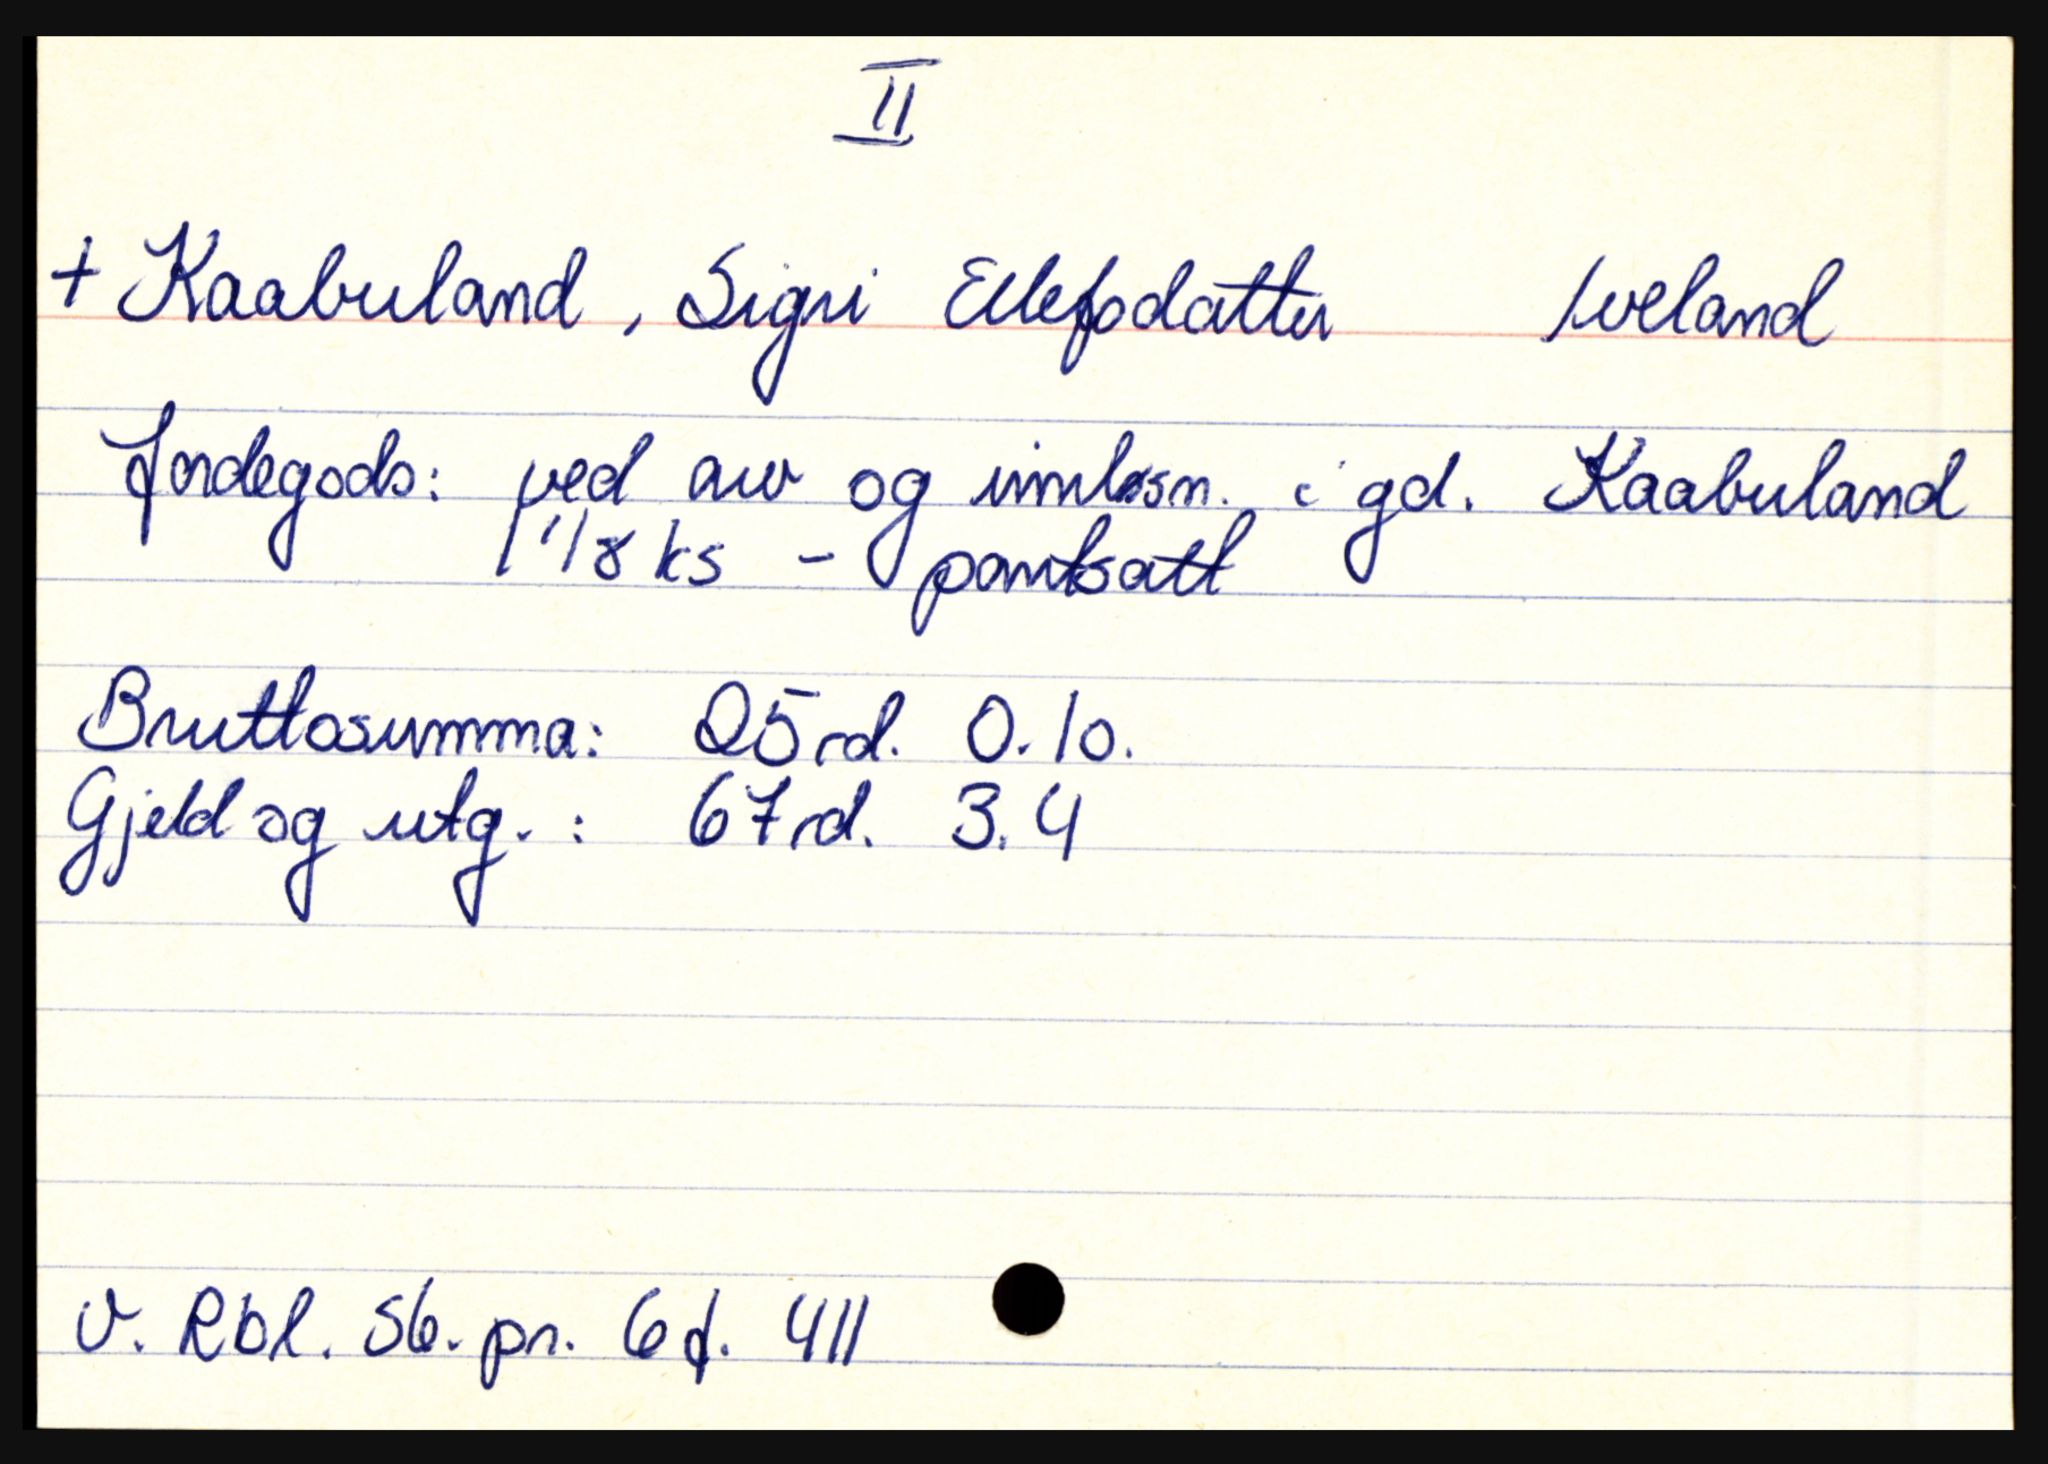 II
+ Kaabuland, Sigri Ellefsdatter Iveland
Jordegods: ved arv og innløsn. i gd. Kaabuland
1/8 ks - pantsatt
Bruttosumma: 25 rd. 0.10.
Gjeld og utg. : 67 rd. 3.4
V. Rbl. Sb. pr. 6 f. 411